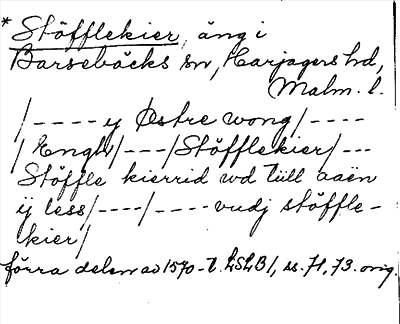 * Stöfflekier, äng i
Barsebäcks sn, Harjagers hd,
Malm. l.
/ - - - - y Østre vong / - - - -
/ Engh / - - - / Stöfflekier / - - -
Stöffle kierrid vd till aaën
ÿ less / - - - - / - - - - vudj stöffle-
kier /
förra delen av 1570-t. LSLB 1, ss. 71, 73. orig.